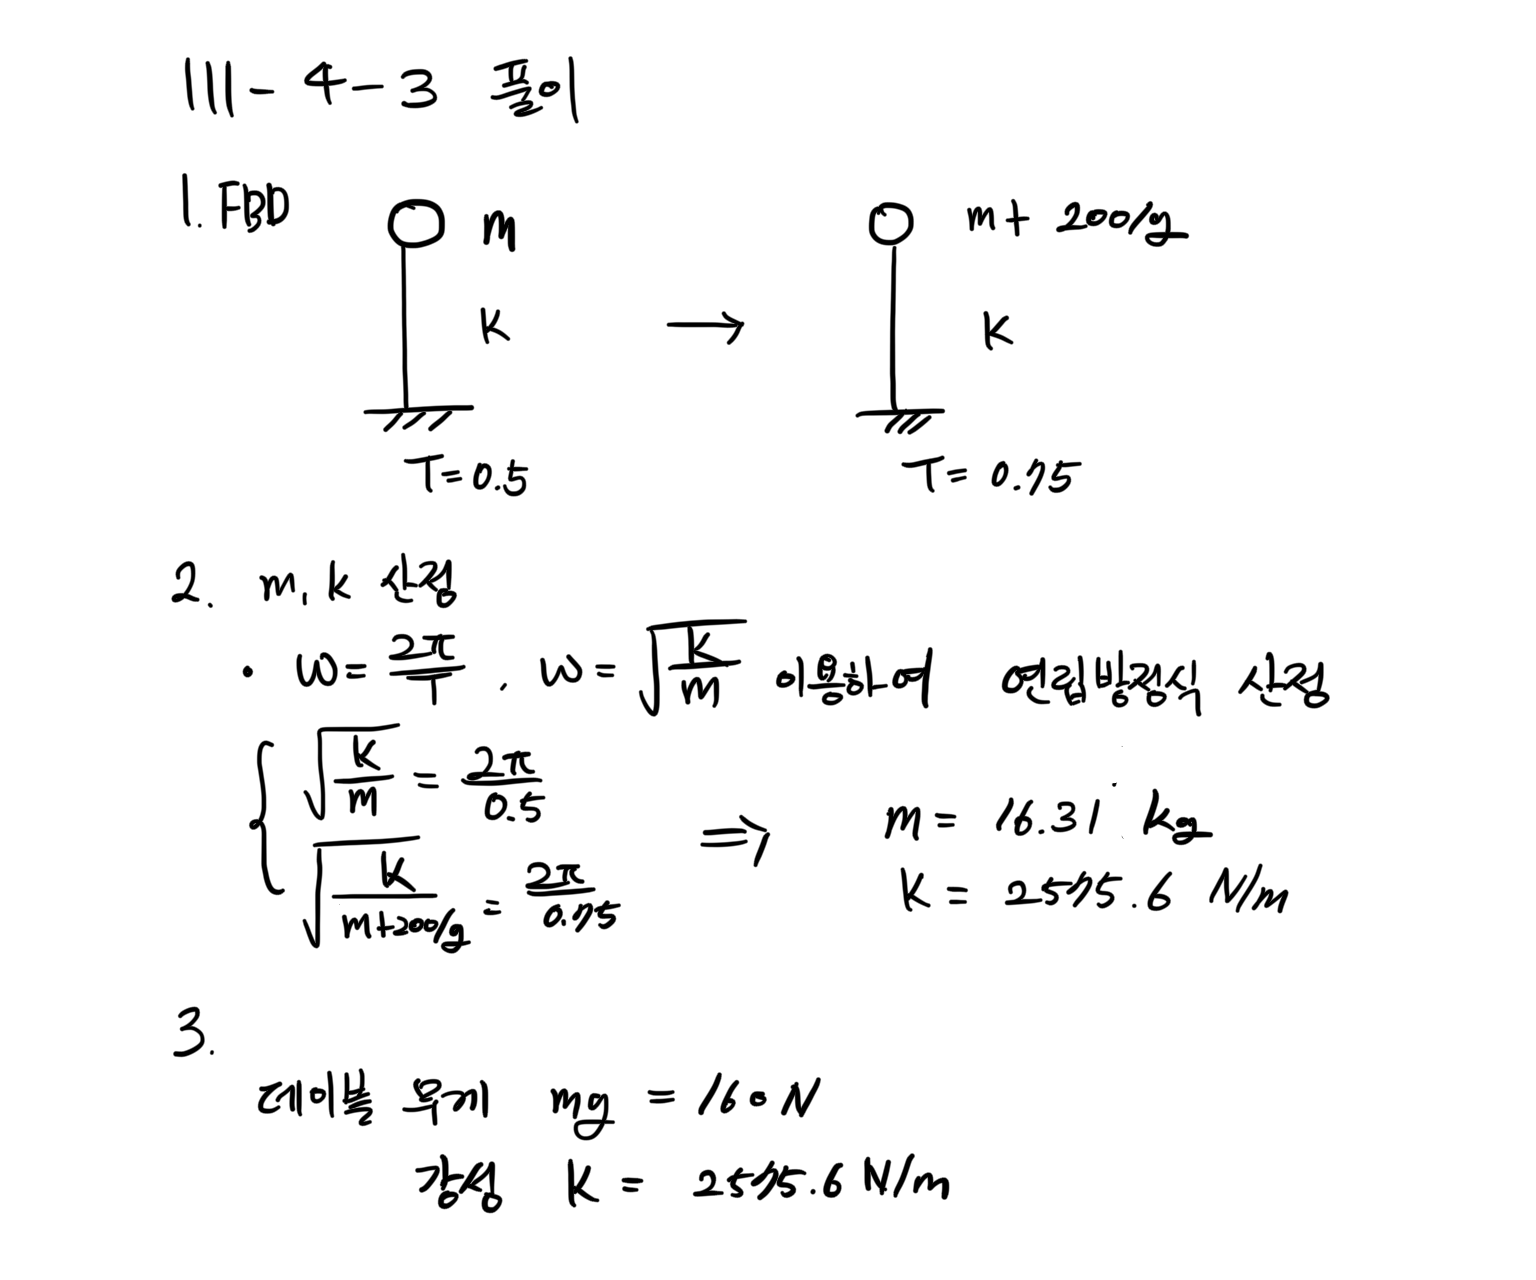 III - 4 - 3 풀이
1. FBD
m
m + 200/g
K
→
K
T = 0.5
T = 0.75
2. m, k 산정
· ω = 2π/T , ω = √(K/m) 이용하여 연립방정식 산정
√(K/m) = 2π/0.5
√(K/(m+200/g)) = 2π/0.75
⇒
m = 16.31 kg
K = 2575.6 N/m
3.
테이블 무게 mg = 160 N
강성 K = 2575.6 N/m